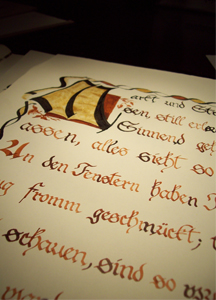 Markt und Str
sen still erle
Sinnend ge
assen, alles sieht so
An den Fenstern haben F
g fromm geschmückt,
schauen, sind so